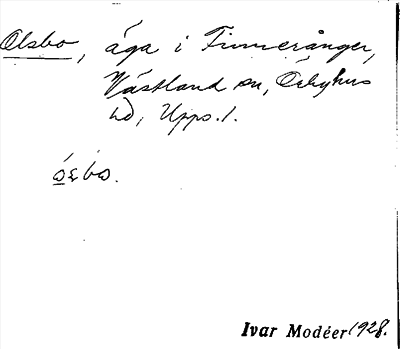 Olsbo, äga i Finnerånger,
Västland sn, Örbyhus
hd, Upps. l.
Ivar Modéer 1928.